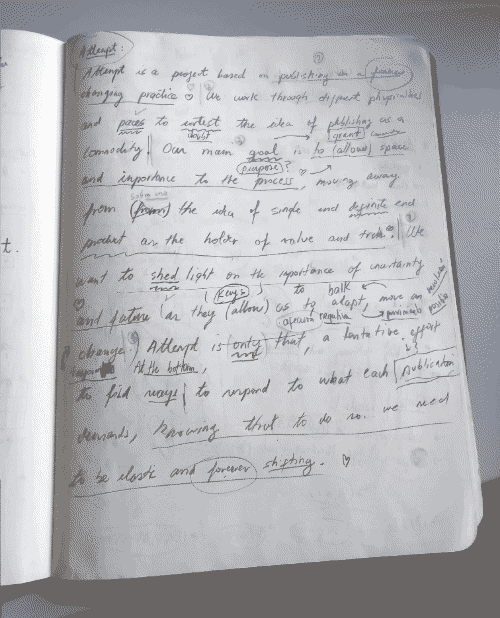 Attempt:
Attempt is a project based on publishing as a forever
changing practice ♡ We work through different physicalities
and paces to the idea of publishing as a
doubt
commodity Our main goal is to (allow) space
(purpose)?
and importance to the process, moving away
from (from) the idea of single and definite end
product as the holder of value and truth. We
want to shed light on the importance of uncertainty
and failure as they (allow) us to adapt, move on
to halt
(Keys)
change Attempt is only that, a tentative effort
At the bottom,
to find ways to respond to what each publication
demands, knowing that to do so we need
to be elastic and forever shifting. ♡
t.